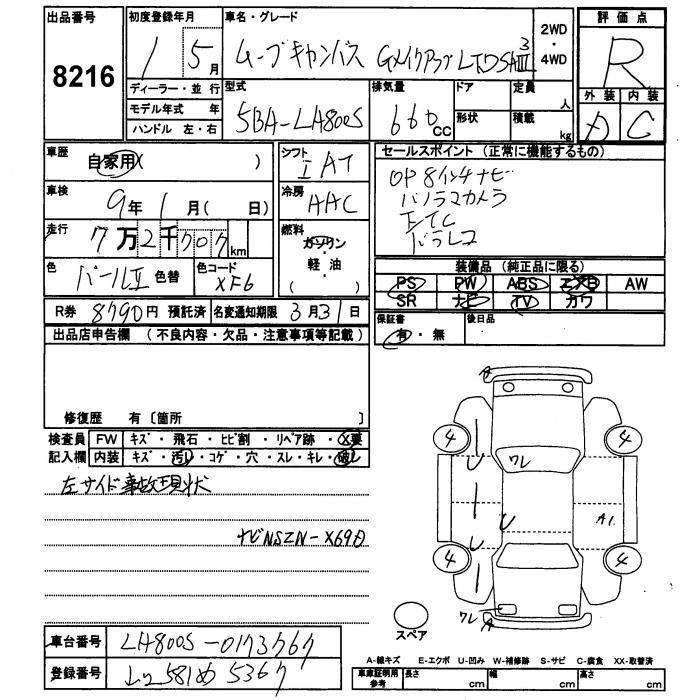 出品番号
8216
初度登録年月
1 5月
車名・グレード
ムーブキャンバス GメイクアップLTDSAⅢ
3
2WD
・
4WD
評価点
R
外装 内装
C
ディーラー・並行
モデル年式 年
ハンドル 左・右
型式
5BA-LA800S
排気量
660 CC
ドア
形状
定員 人
積載 kg
車歴
自家用( )
車検
9年1月( 日)
走行
7万2千707km
色
パールⅡ 色替
色コード
XF6
シフト
IAT
冷房
AAC
燃料
ガソリン
・
軽・油
( )
セールスポイント (正常に機能するもの)
OP 8インチナビ
パノラマカメラ
ETC
ドラレコ
装備品 (純正品に限る)
PS PW ABS エアB AW
SR ナビ TV カワ
保証書
有・無
後日品
R券 8790円 預託済 名変通知期限 3月31日
出品店申告欄 (不良内容・欠品・注意事項等記載)
修復歴 有〔箇所 〕
検査員 FW キズ・飛石・ヒビ割・リペア跡・X要
記入欄 内装 キズ・汚レ・コゲ・穴・スレ・キレ・破レ
左サイド事故現状
ナビNSZN-X69D
4 4
ワレ
U
U
U
A1
4 4
ワレ
スペア
車台番号 LA800S-0173767
登録番号 581め5367
A-線キズ E-エクボ U-凹み W-補修跡 S-サビ C-腐食 XX-取替済
車庫証明用参考 長さ cm 幅 cm 高さ cm